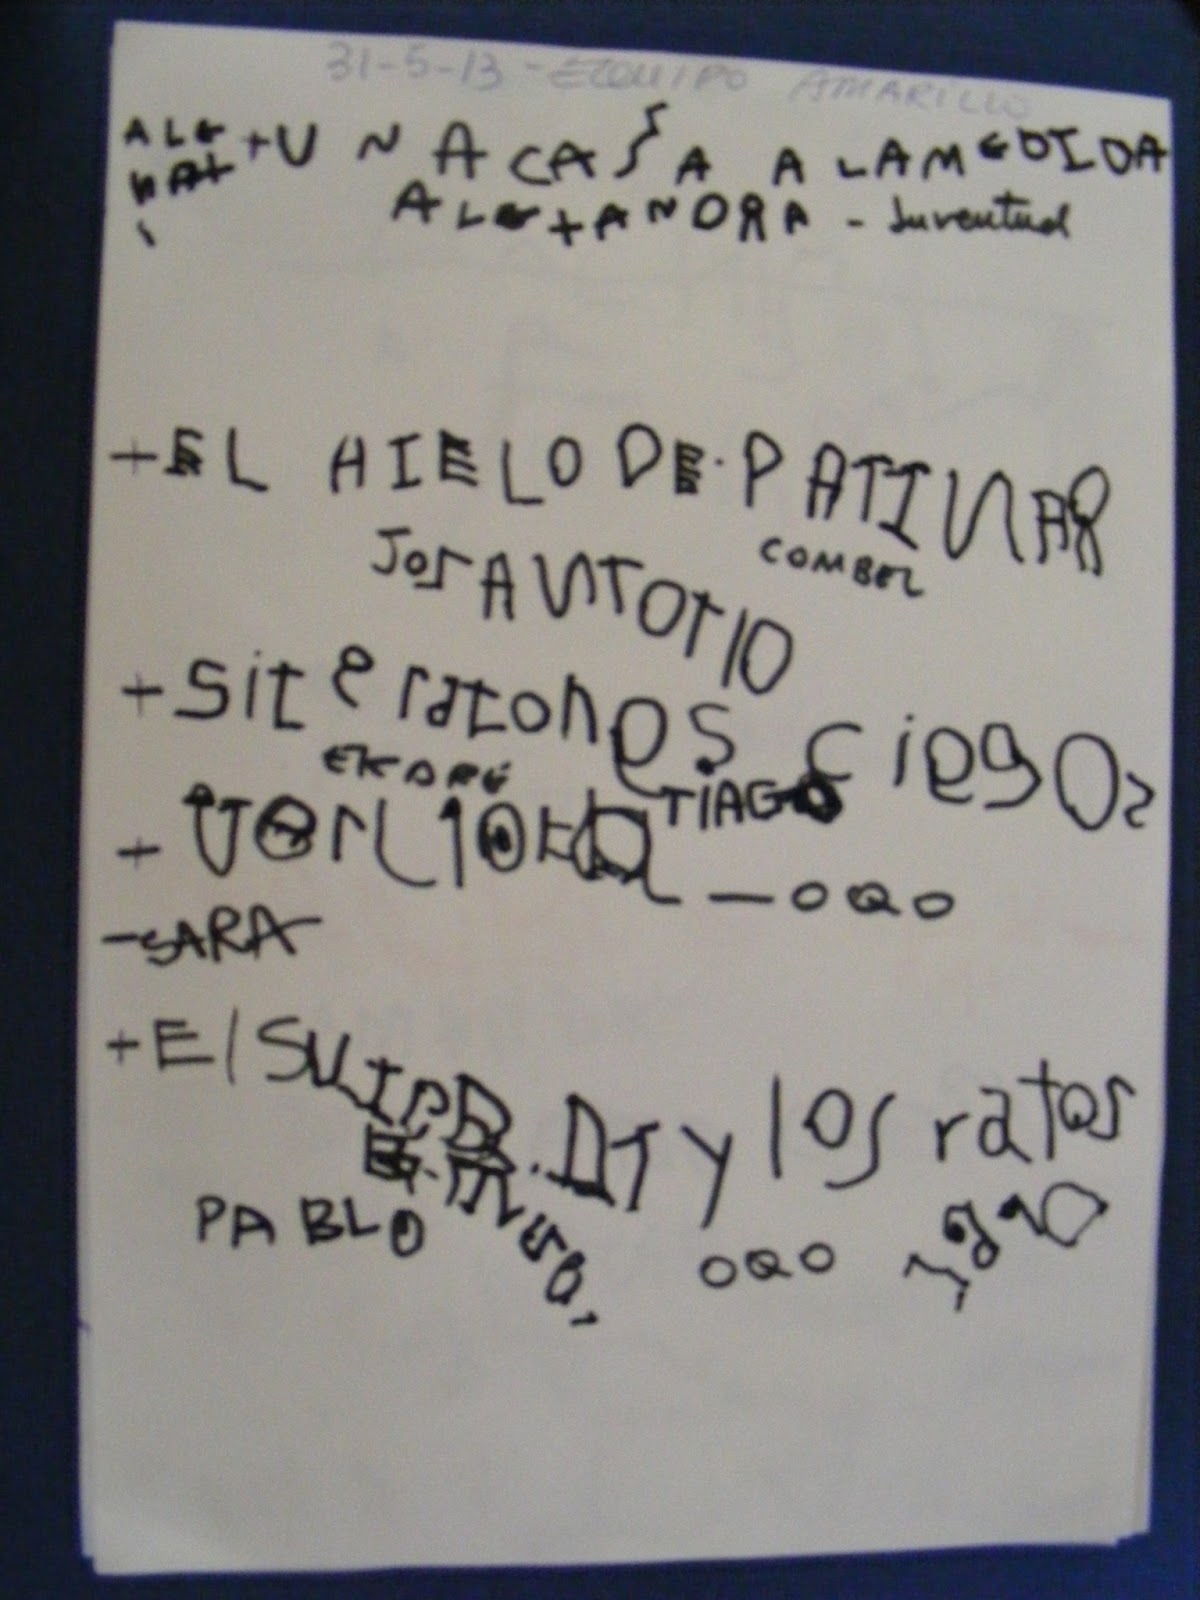 31-5-13 - EQUIPO AMARILLO
ALE + UNA CASA A LA MEDIDA
ALEXANDRA - Juventud
+ EL HIELO DE PATINAR
COMBEL
JOS ANTOTIO
+ Site ratones ciegos
TIAGO
+ - OQO
- SARA
+ El y los ratos
PABLO OQO